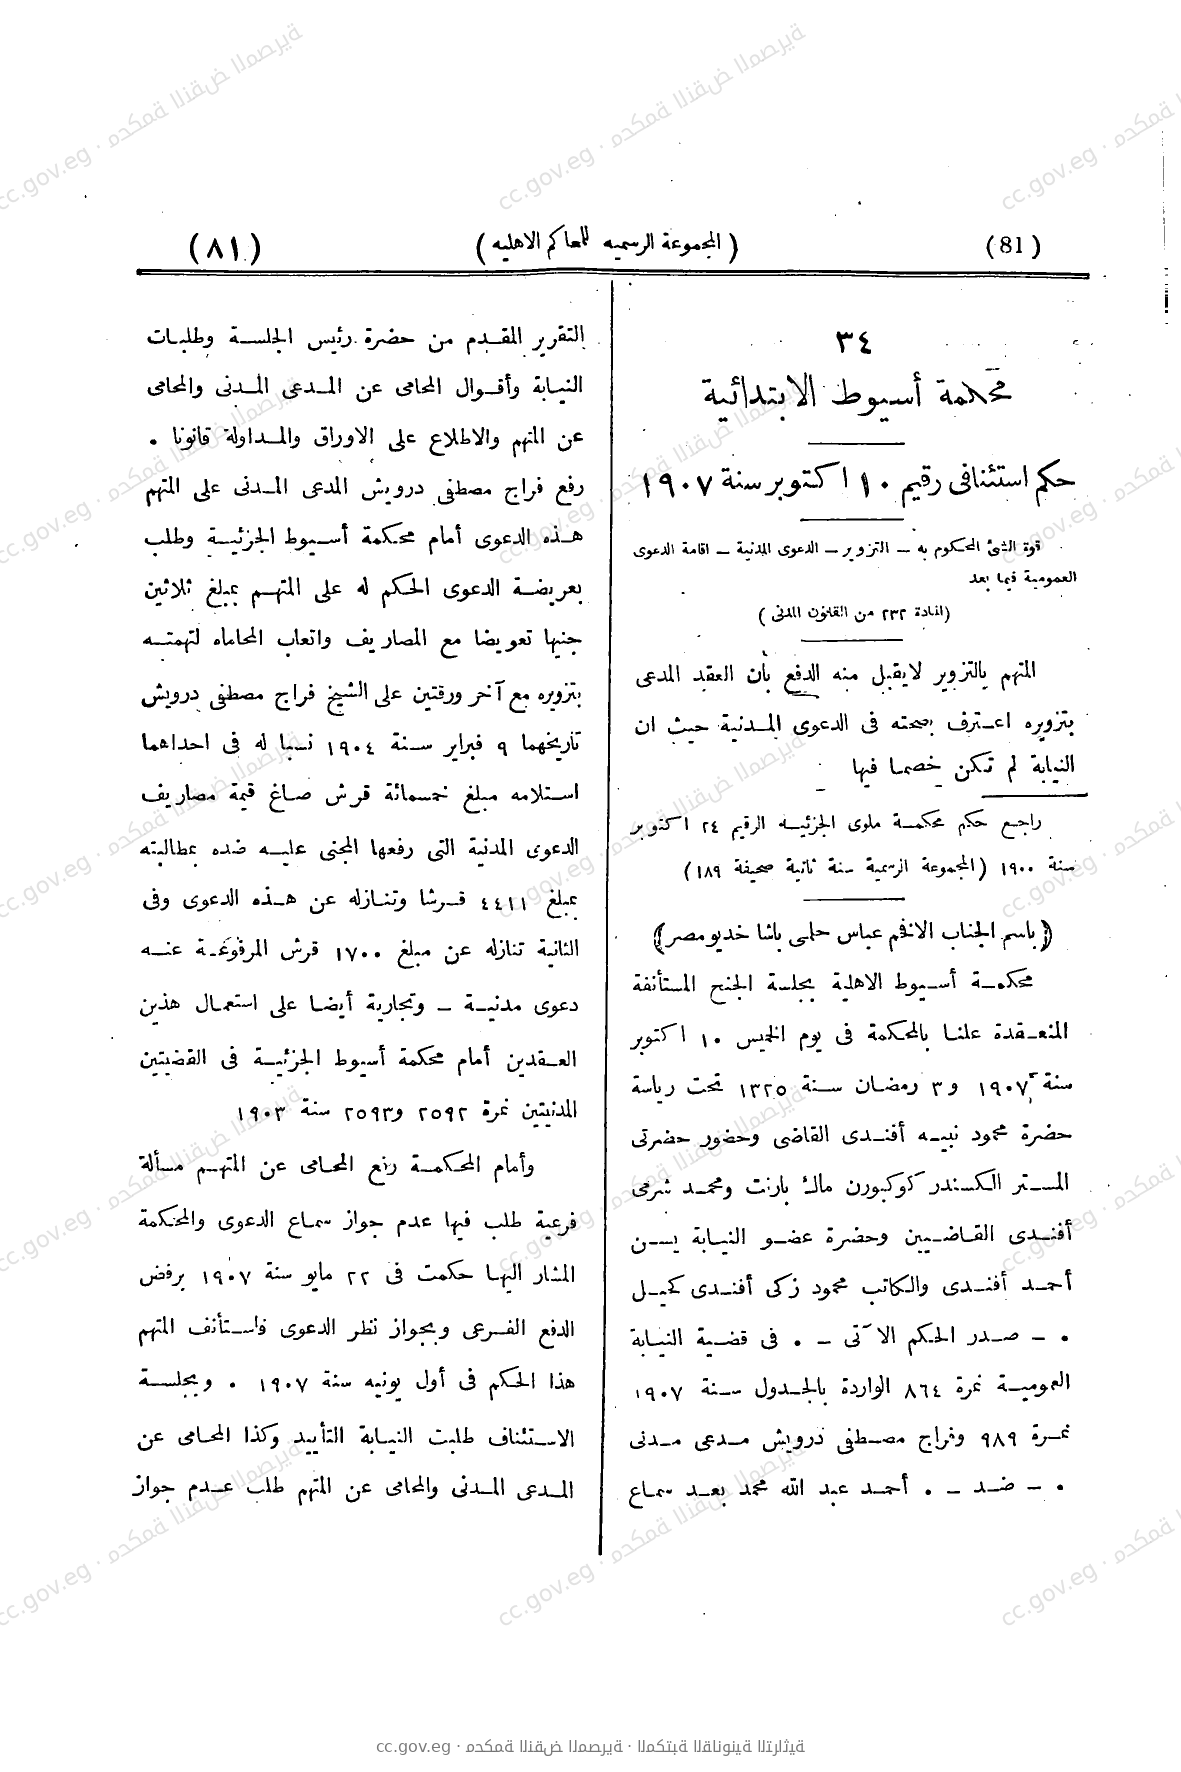 (81) (المجموعة الرسميه للمحاكم الاهليه) (٨١)
٣٤
محكمة أسيوط الابتدائية
حكم استئنافى رقيم ١٠ اكتوبر سنة ١٩٠٧
قوة الشئ المحكوم به – التزوير – الدعوى المدنية – اقامة الدعوى
العمومية فيما بعد
(المادة ٢٣٢ من القانون المدنى)
المتهم بالتزوير لايقبل منه الدفع بأن العقد المدعى
بتزويره اعترف بصحته فى الدعوى المدنية حيث ان
النيابة لم تكن خصما فيها
راجع حكم محكمة ملوى الجزئيه الرقيم ٢٤ اكتوبر
سنة ١٩٠٠ (المجموعة الرسمية سنة ثانية صحيفة ١٨٩)
(باسم الجناب الافخم عباس حلمى باشا خديو مصر)
محكمة أسيوط الاهلية بجلسة الجنح المستأنفة
المنعقدة علنا بالمحكمة فى يوم الخميس ١٠ اكتوبر
سنة ١٩٠٧ و٣ رمضان سنة ١٣٢٥ تحت رياسة
حضرة محمود نبيه أفندى القاضى وحضور حضرتى
المستر الكسندر كوكبورن ماك بارنت ومحمد شرمى
أفندى القاضيين وحضرة عضو النيابة يسن
أحمد أفندى والكاتب محمود زكى أفندى كحيل
. – صدر الحكم الآتى – . فى قضية النيابة
العمومية نمرة ٨٦٤ الواردة بالجدول سنة ١٩٠٧
نمرة ٩٨٩ وفراج مصطفى درويش مدعى مدنى
. – ضد – . أحمد عبد الله محمد بعد سماع
التقرير المقدم من حضرة رئيس الجلسة وطلبات
النيابة وأقوال المحامى عن المدعى المدنى والمحامى
عن المتهم والاطلاع على الاوراق والمداولة قانونا .
رفع فراج مصطفى درويش المدعى المدنى على المتهم
هذه الدعوى أمام محكمة أسيوط الجزئية وطلب
بعريضة الدعوى الحكم له على المتهم بمبلغ ثلاثين
جنيها تعويضا مع المصاريف واتعاب المحاماه لتهمته
بتزويره مع آخر ورقتين على الشيخ فراج مصطفى درويش
تاريخهما ٩ فبراير سنة ١٩٠٤ نسبا له فى احداهما
استلامه مبلغ خمسمائة قرش صاغ قيمة مصاريف
الدعوى المدنية التى رفعها المجنى عليه ضده بمطالبته
بمبلغ ٤٤١١ قرشا وتنازله عن هذه الدعوى وفى
الثانية تنازله عن مبلغ ١٧٠٠ قرش المرفوعة عنه
دعوى مدنية – وتجارية أيضا على استعمال هذين
العقدين أمام محكمة أسيوط الجزئية فى القضيتين
المدنيتين نمرة ٢٥٩٢ و٢٥٩٣ سنة ١٩٠٣
وأمام المحكمة رفع المحامى عن المتهم مسألة
فرعية طلب فيها عدم جواز سماع الدعوى والمحكمة
المشار اليها حكمت فى ٢٢ مايو سنة ١٩٠٧ برفض
الدفع الفرعى وبجواز نظر الدعوى فاستأنف المتهم
هذا الحكم فى أول يونيه سنة ١٩٠٧ . وبجلسة
الاستئناف طلبت النيابة التأييد وكذا المحامى عن
المدعى المدنى والمحامى عن المتهم طلب عدم جواز
cc.gov.eg · محكمة النقض المصرية · المكتبة القانونية التراثية